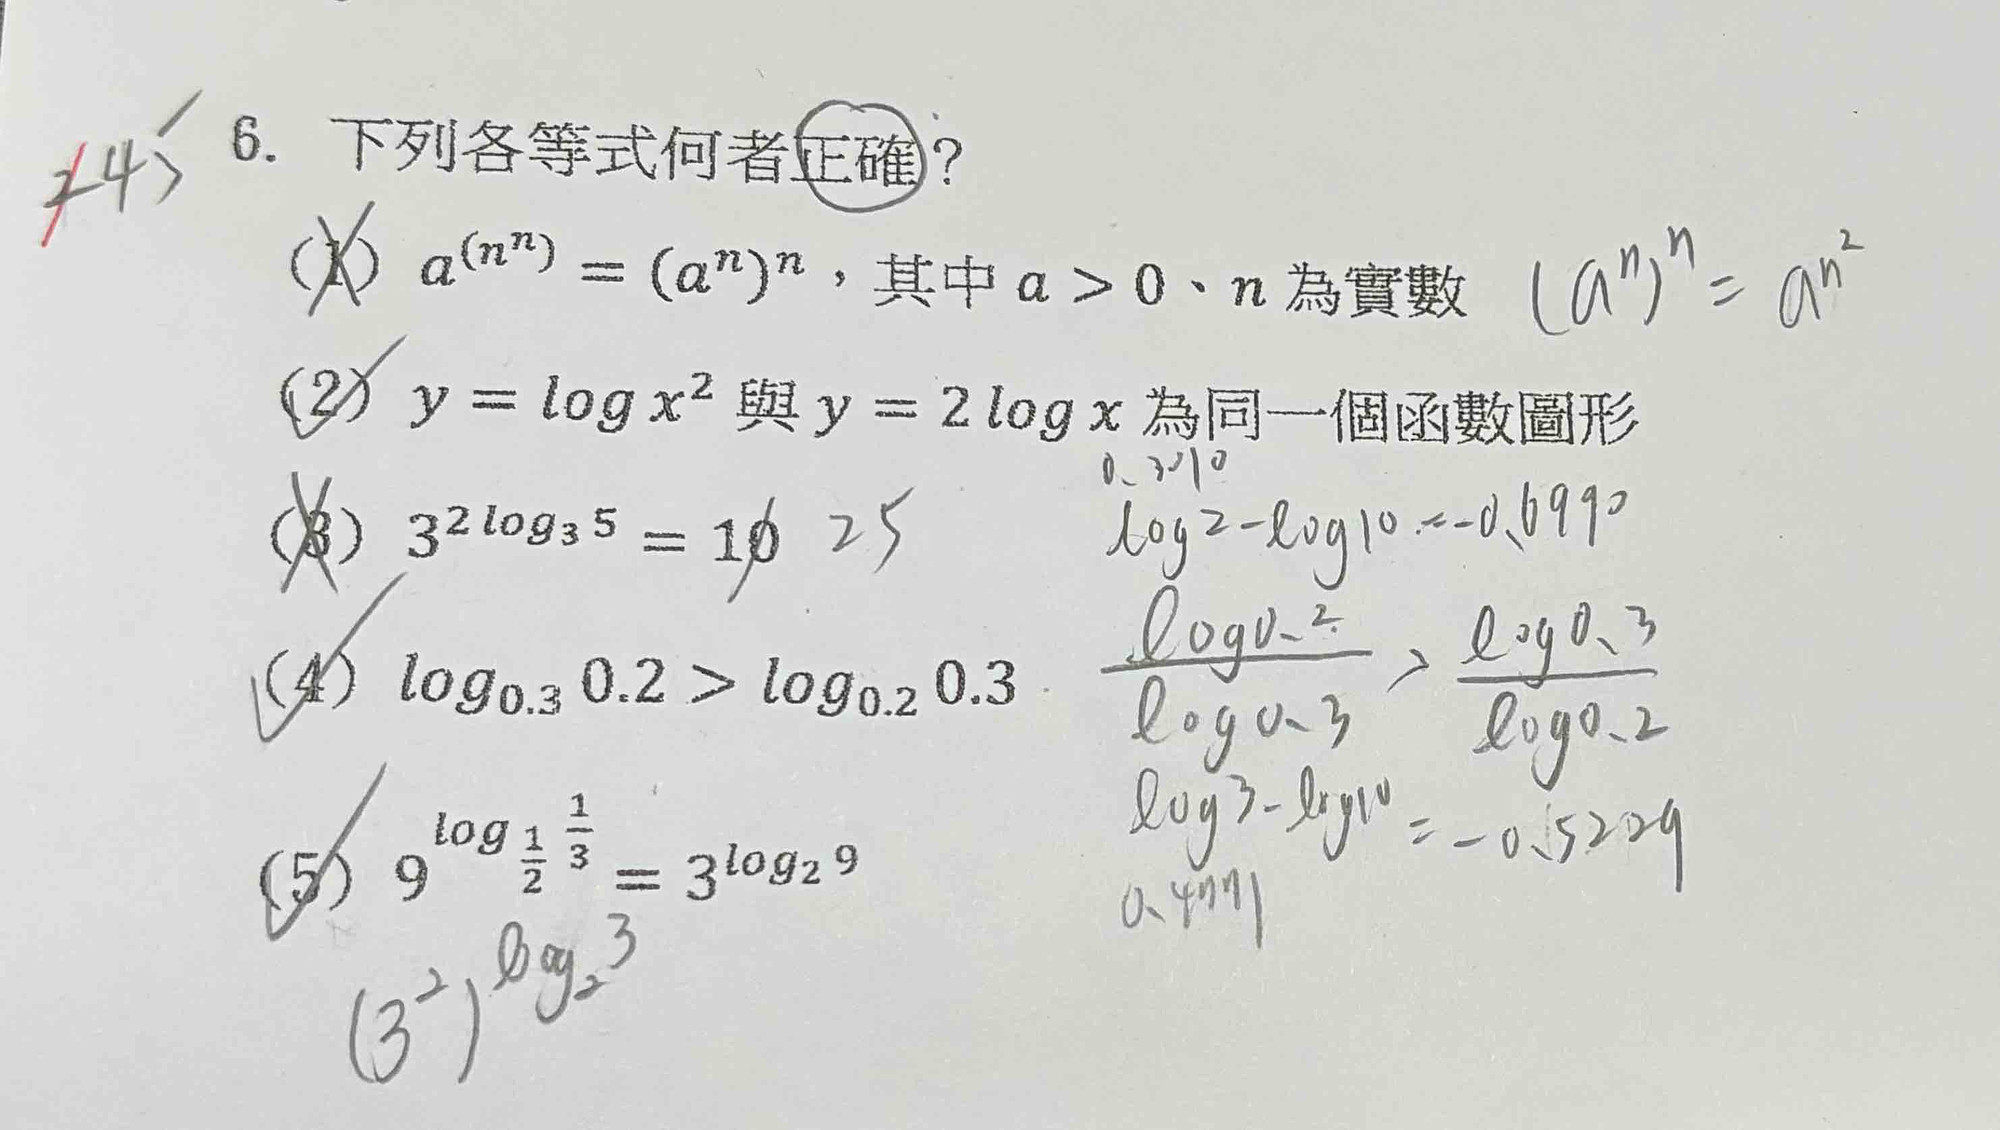 245
6. 下列各等式何者正確?
(1) a^(n^n) = (a^n)^n,其中 a > 0、n 為實數 (a^n)^n = a^n^2
(2) y = log x^2 與 y = 2 log x 為同一個函數圖形
0.3010
(3) 3^(2 log_3 5) = 10 25 log2-log10=-0.6990
(4) log_0.3 0.2 > log_0.2 0.3 log0.2/log0.3 > log0.3/log0.2
log3-log10=-0.5229
(5) 9^(log_(1/2) 1/3) = 3^(log_2 9)
0.4771
(3^2)^log_2 3